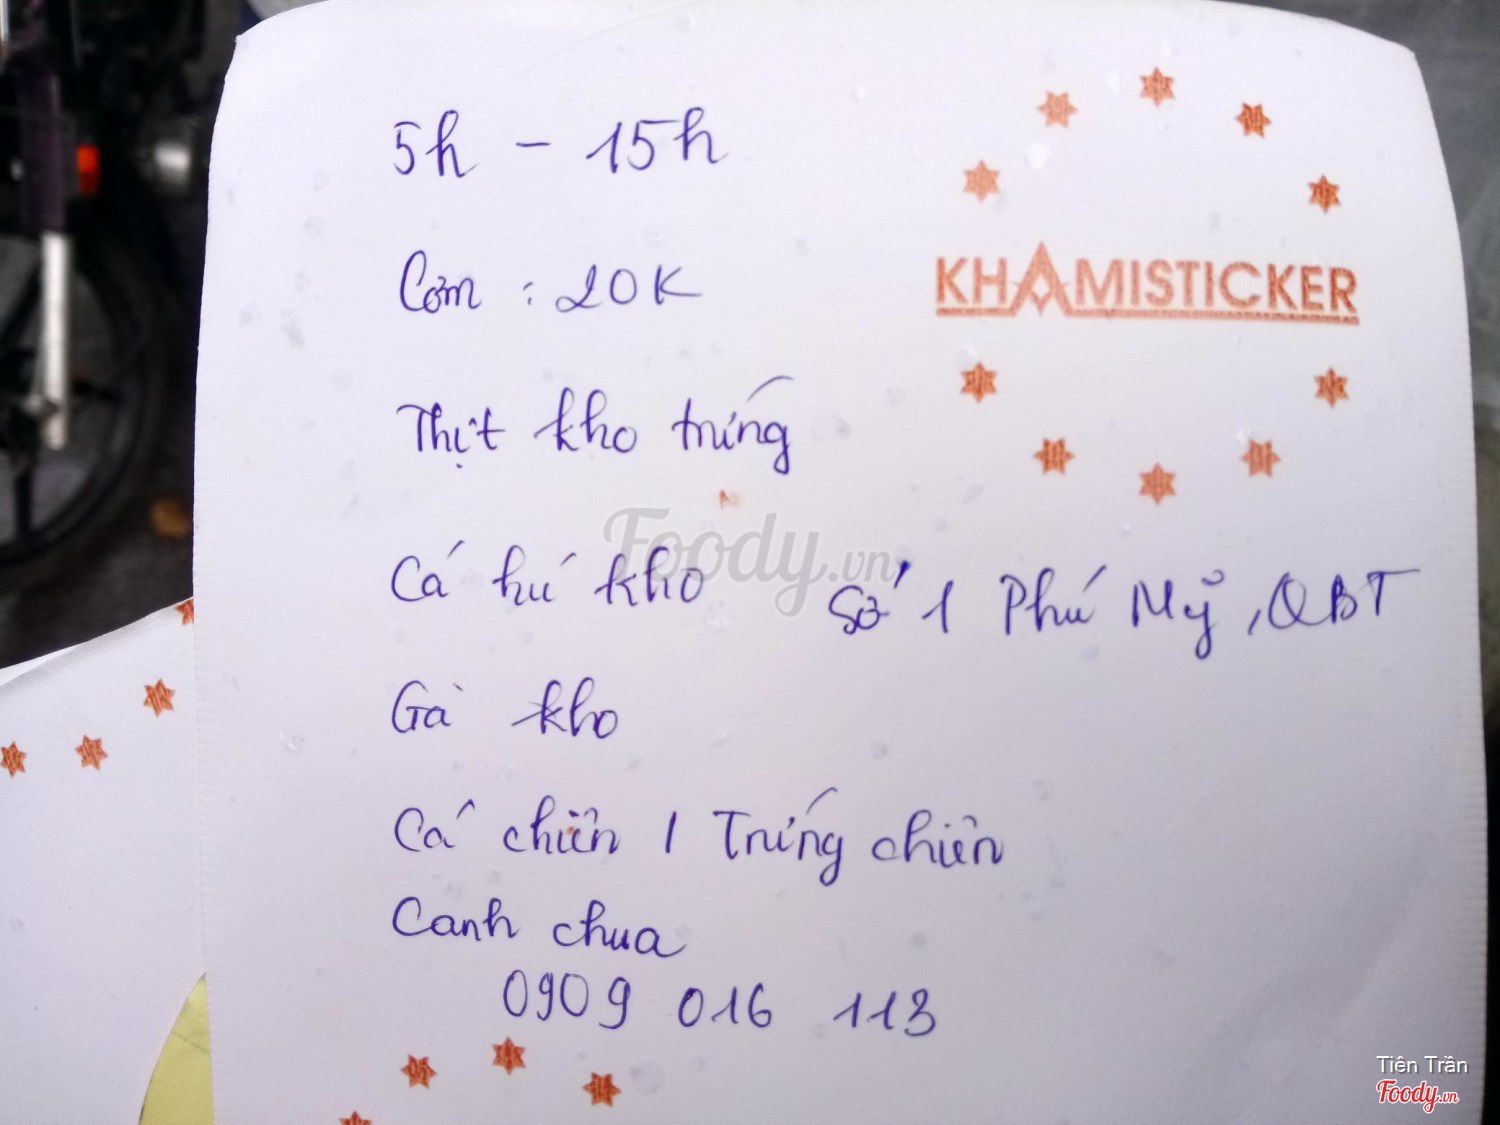 5h - 15h
KHAMISTICKER
Cơm : 20K
Thịt kho trứng
Cá hú kho
Số 1 Phú Mỹ, QBT
Gà kho
Cá chiên / Trứng chiên
Canh chua
0909 016 113
Foody.vn
Tiên Trần
Foody.vn